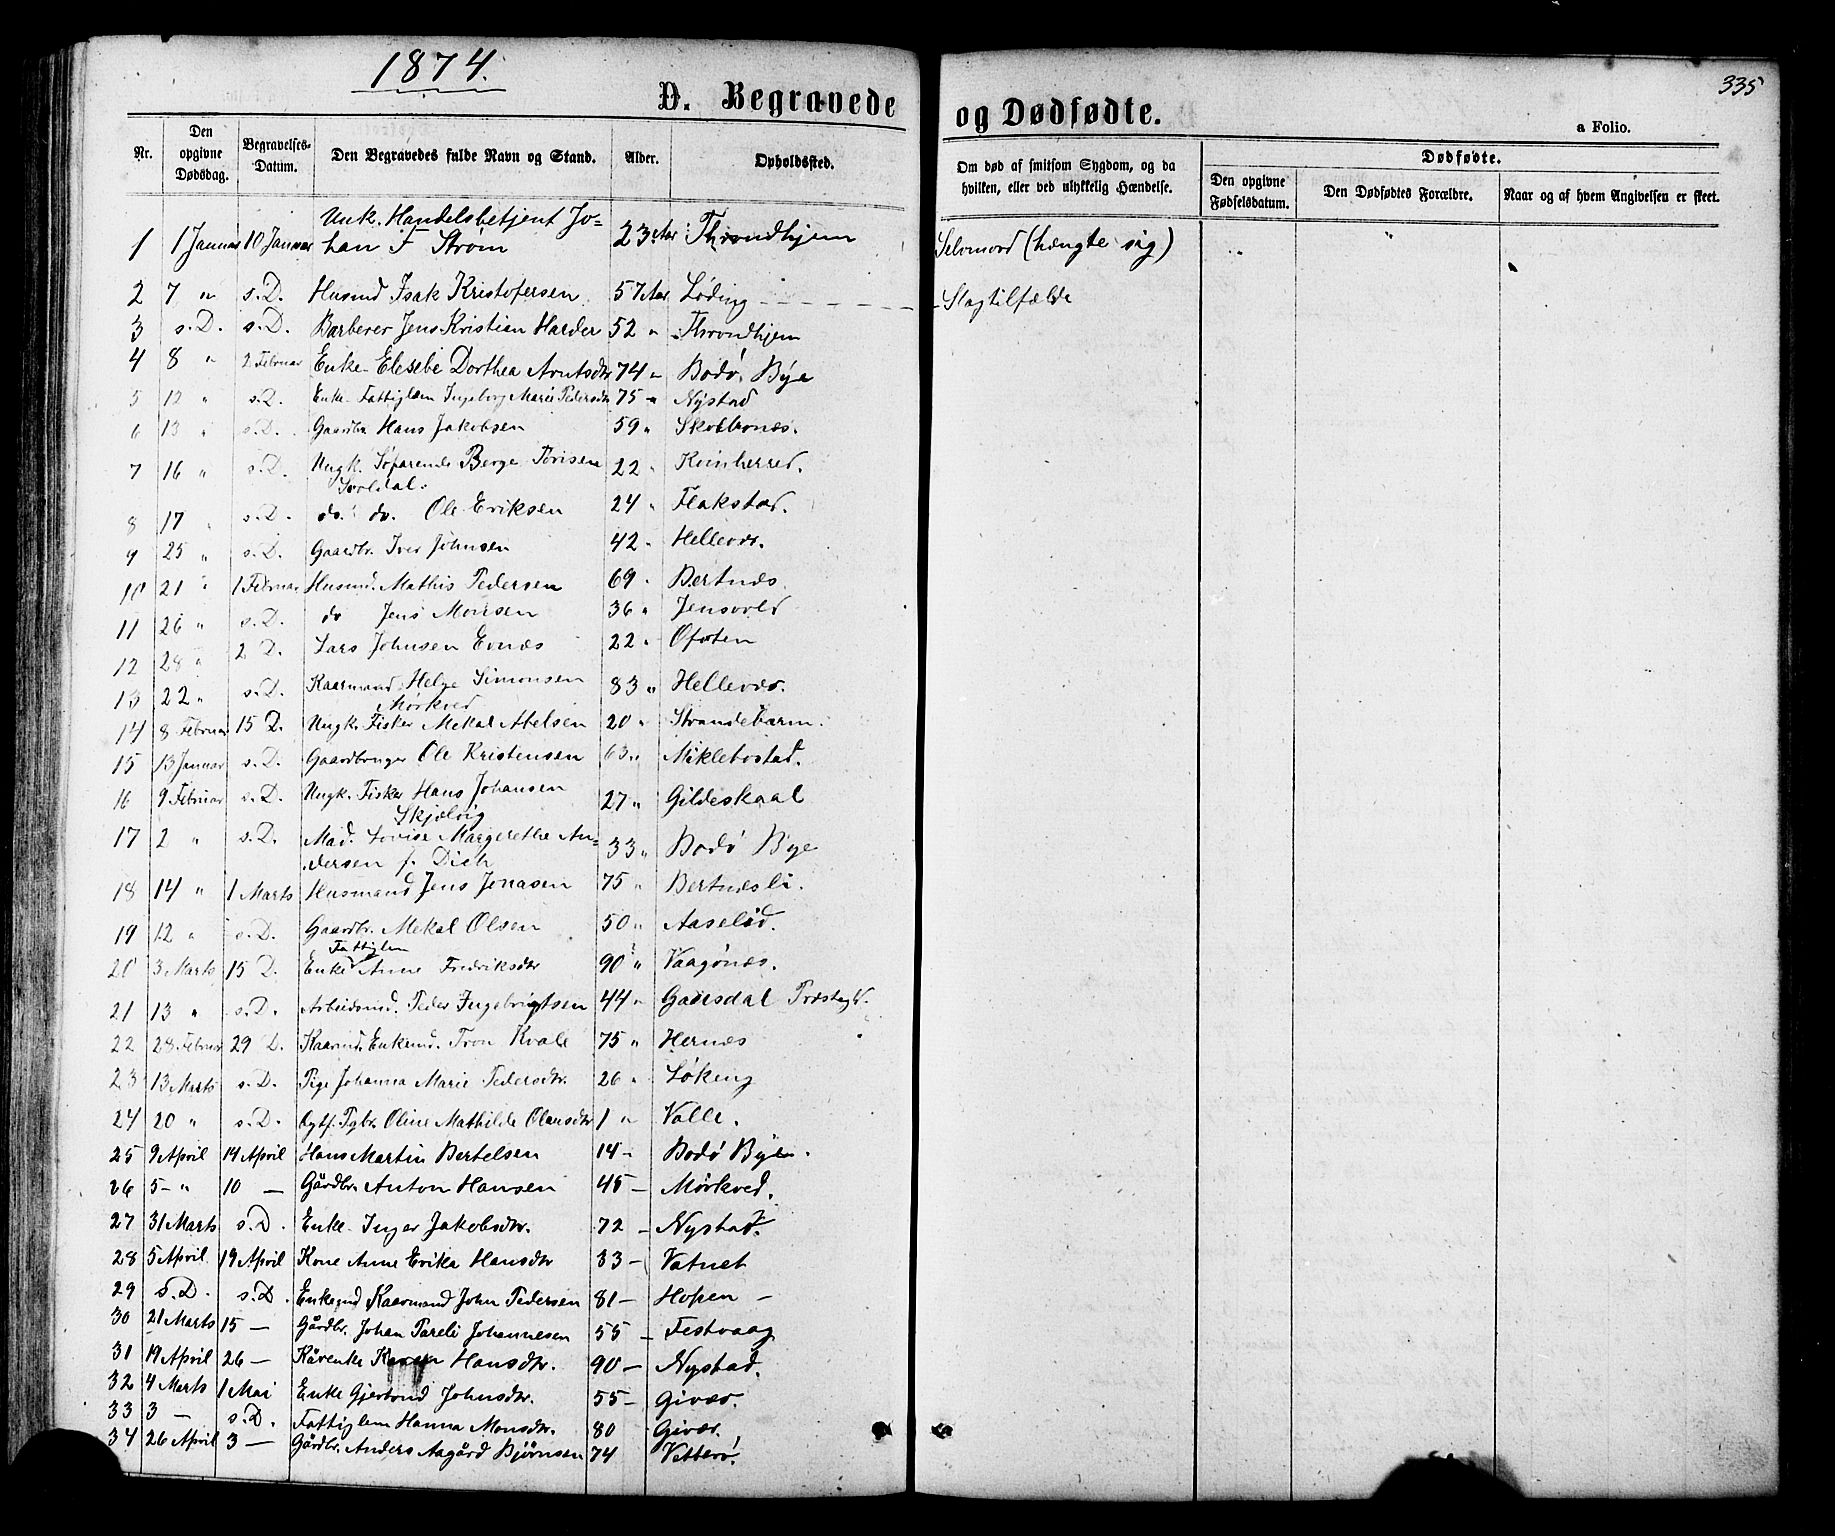 1874.
335
D. Begravede og Dødfødte.
a Folio.
Nr. Den opgivne Dødsdag. Begravelses-Datum. Den Begravedes fulde Navn og Stand. Alder. Opholdssted. Om død af smitsom Sygdom, og da hvilken, eller ved ulykkelig Hændelse. Dødfødte. Den opgivne Fødselsdatum. Den Dødfødtes Forældre. Naar og af hvem Angivelsen er skeet.
1 1 Januar 10 Januar Unk. Handelsbetjent Jo-
han F Strøm 23 Aar Throndhjem Selvmord (hængte sig) " "
2 7 " s.D. Husmd Isak Kristofersen 57 Aar Løding - Slagtilfælde
3 s.D. s.D. Barberer Jens Kristian Harder 52 " Throndhjem
4 8 " 2 Februar Enke Elesebe Dorthea Arntsdtr 74 " Bodø Bye
5 12 " s.D. Enke Fattiglem Ingeborg Marie Pedersdtr 75 " Nystad
6 13 " s.D. Gaardbr Hans Jakobsen 59 "
7 16 " s.D. Ungk. Søfarende Berge 22 " Kvinherred.
8 17 " s.D. do. do. Ole Eriksen 24 " Flakstad.
9 25 " s.D. Gaardbr. Iver Johnsen 42 "
10 21 " 1 Februar Husmd. Mathis Pedersen 69 " Bertnæs
11 26 " s.D. do Jens Monsen 36 " Jensvold
12 28 " 2 D. Lars Johnsen Evnæs 22 " Ofoten
13 22 " s.D. Kaarmand Helge Simonsen
Mørkved 83 "
14 8 Februar 15 D. Ungk. Fisker Mekal Abelsen 20 " Strandebarm.
15 13 Januar s.D. Gaardbruger Ole Kristensen 63 " Miklebostad.
16 9 Februar s.D. Ungk. Fisker Hans Johansen
Skjelvig 27 " Gildeskaal
17 2 " s.D. Mad. Lovise Margrethe An-
dersen f. Dich 33 " Bodø Bye
18 14 " 1 Marts Husmand Jens Jonasen 75 " Bertnæsli.
19 12 " s.D. Gaardbr. Mekal Olsen 50 "
20 3 Marts 15 D. Enke Fattiglem Anne Fredriksdtr 90 " Vaagønæs.
21 13 " s.D. Arbeidsmd. Peder Ingebrigtsen 44 " Gausdal Præstegld.
22 28 Februar 29 D. Kaarmd. Enkemd. Tron Kvale 75 " Hernæs
23 13 Marts s.D. Pige Johanna Marie Pedersdtr. 26 " Løkeng
24 20 " s.D. Pgbr. Oline Mathilde Olausdtr 1 " Valle.
25 9 April 14 April Hans Martin Bertelsen 14 - Bodø Byen.
26 5 - " 10 - Gårdbr. Anton Hansen 45 - Mørkved.
27 31 Marts s.D. Enke Inger Jakobsdtr. 72 - Nystad.
28 5 April 19 April Kone Anne Erika Hansdtr 33 - Vatnet
29 s.D. s.D. Enkemd Kaarmand John Pedersen 81 - Hopen -
30 21 Marts 15 - Gårdbr. Johan Pareli Johannesen 55 - Festvaag
31 19 April 26 - Kårenke Karen Hansdtr. 90 - Nystad.
32 4 Marts 1 Mai Enke Gjertrud Johnsdtr. 55 - Givær.
33 3 - s.D. Fattiglem Hanna Monsdtr. 80 Givær.
34 26 April 3 - Gårdbr. Anders Aagård Bjørnsen 74